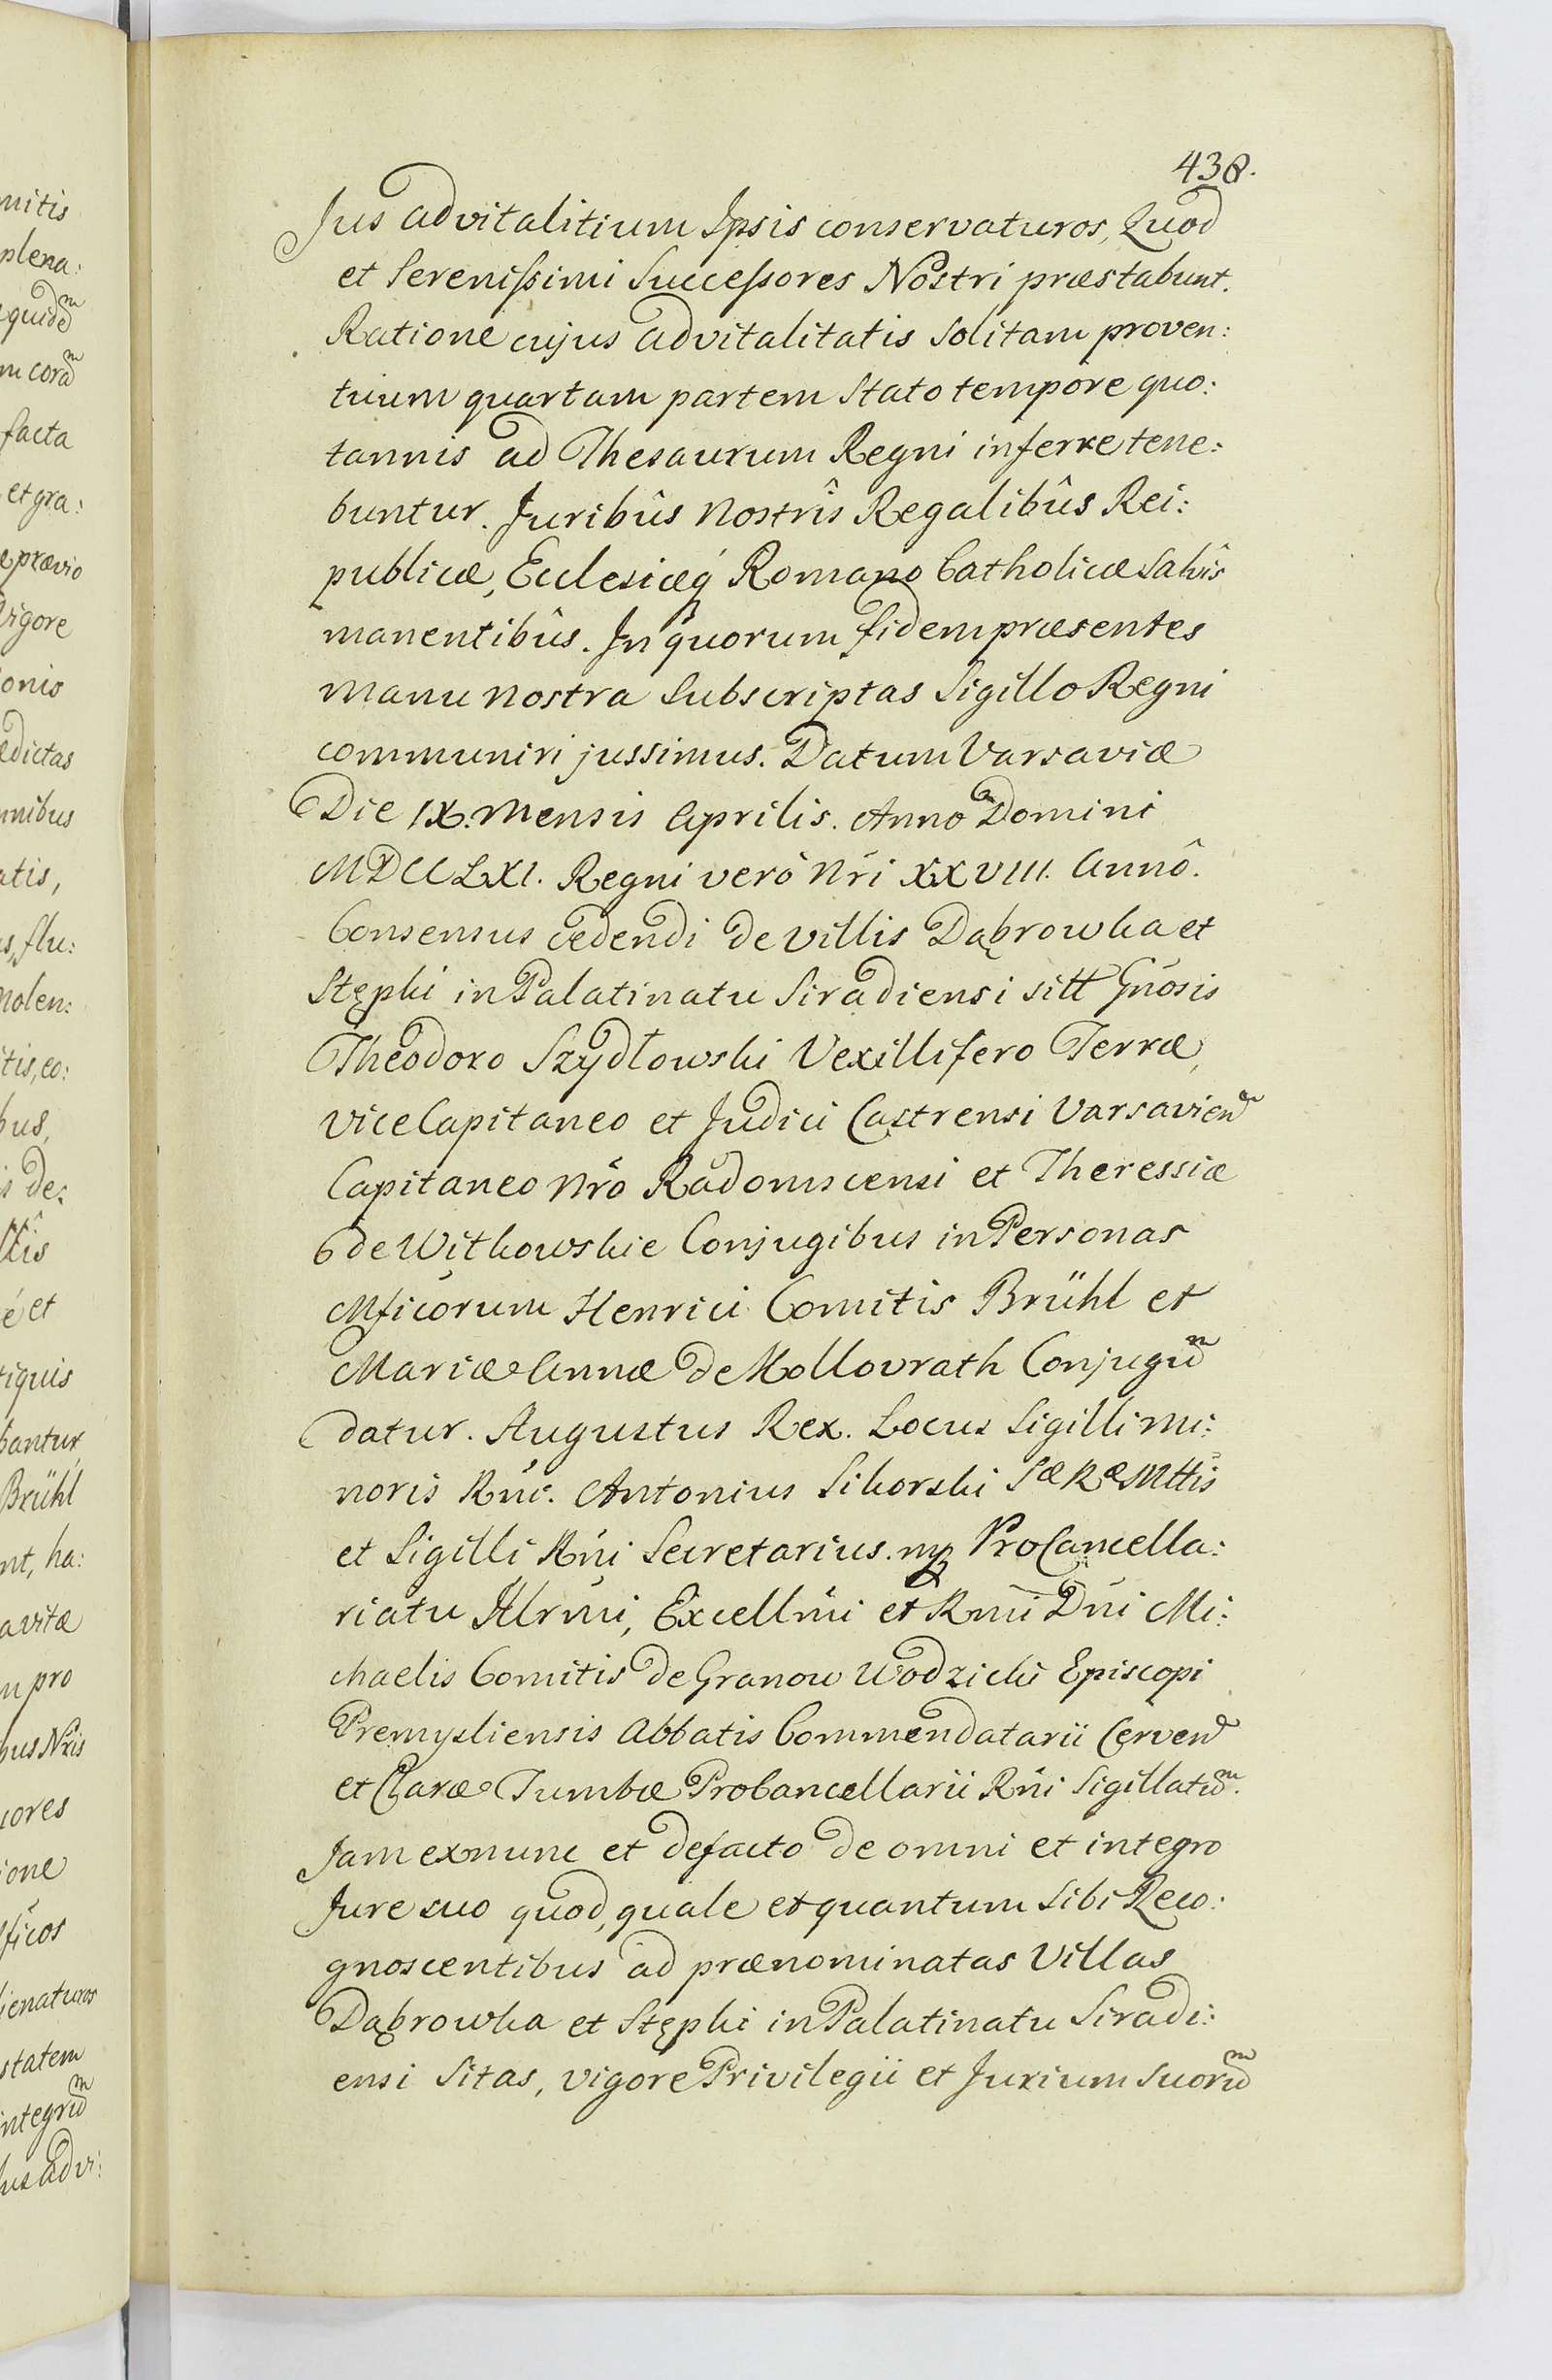 438.
Jus advitalitium Ipsis conservaturos, Quod
et Serenissimi Successores Nostri præstabunt.
Ratione cujus advitalitatis solitam proven:
tuum quartam partem stato tempore quo:
tannis ad Thesaurum Regni inferre tene:
buntur. Juribûs nostrîs Regalibûs Rei:
publicæ, Ecclesiæq́ Romano Catholicæ salvîs
manentibûs. In quorum fidem præsentes
manu nostra subscriptas Sigillo Regni
communiri jussimus. Datum Varsaviæ
Die IX. Mensis Aprilis. Anno Domini
MDCCLXI. Regni verò Nri XXVIII. Annô.
Consensus cedendi de villis Dąbrowka et
Stęphi in Palatinatu Siradiensi sitt Gnosis
Theodoro Szydłowski Vexillifero Terræ,
vice Capitaneo et Judici Castrensi Varsavien
Capitaneo Nro Radomscensi et Theressiæ
de Witkowskie Conjugibus in Personas
Mficorum Henrici Comitis Brühl et
Mariæ Annæ de Kollovrath Conjugũ
datur. Augustus Rex. Locus Sigilli mi:
noris Rni. Antonius Sikorski Sæ Ræ Mttis
et Sigilli Rni Secretarius. mp ProCancella:
riatu Illrmi, Excellmi et Rmi Dni Mi:
chaelis Comitis de Granow Wodzicki Episcopi
Premysliensis Abbatis Commendatarii Cerven
et Claræ Tumbæ Procancellarii Rni Sigillatũ.
Jam exnunc et defacto de omni et integro
Jure suo quod, quale et quantum sibi Reco:
gnoscentibus ad prænominatas Villas
Dąbrowka et Stęphi in Palatinatu Siradi:
ensi Sitas, vigore Privilegii et Jurium suorũ